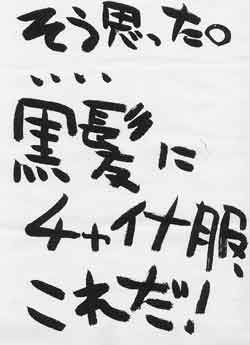 そう思った。
・・・・
黒髪に
チャイナ服、
これだ!